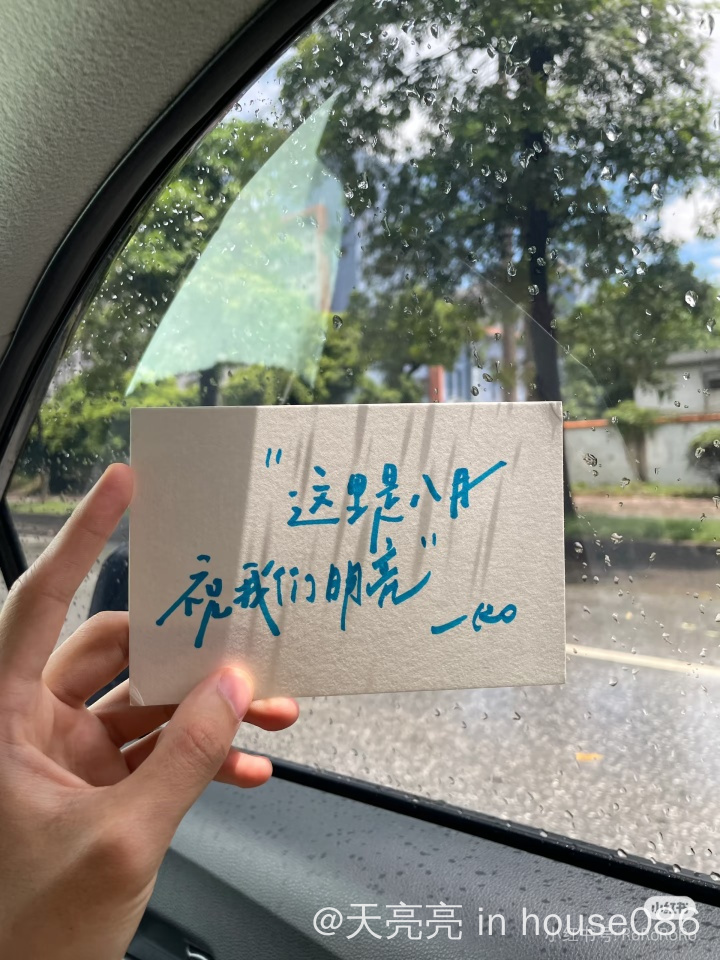 "这里是八月
祝我们明亮"
—KO
@天亮亮 in house086
小红书
小红书号: